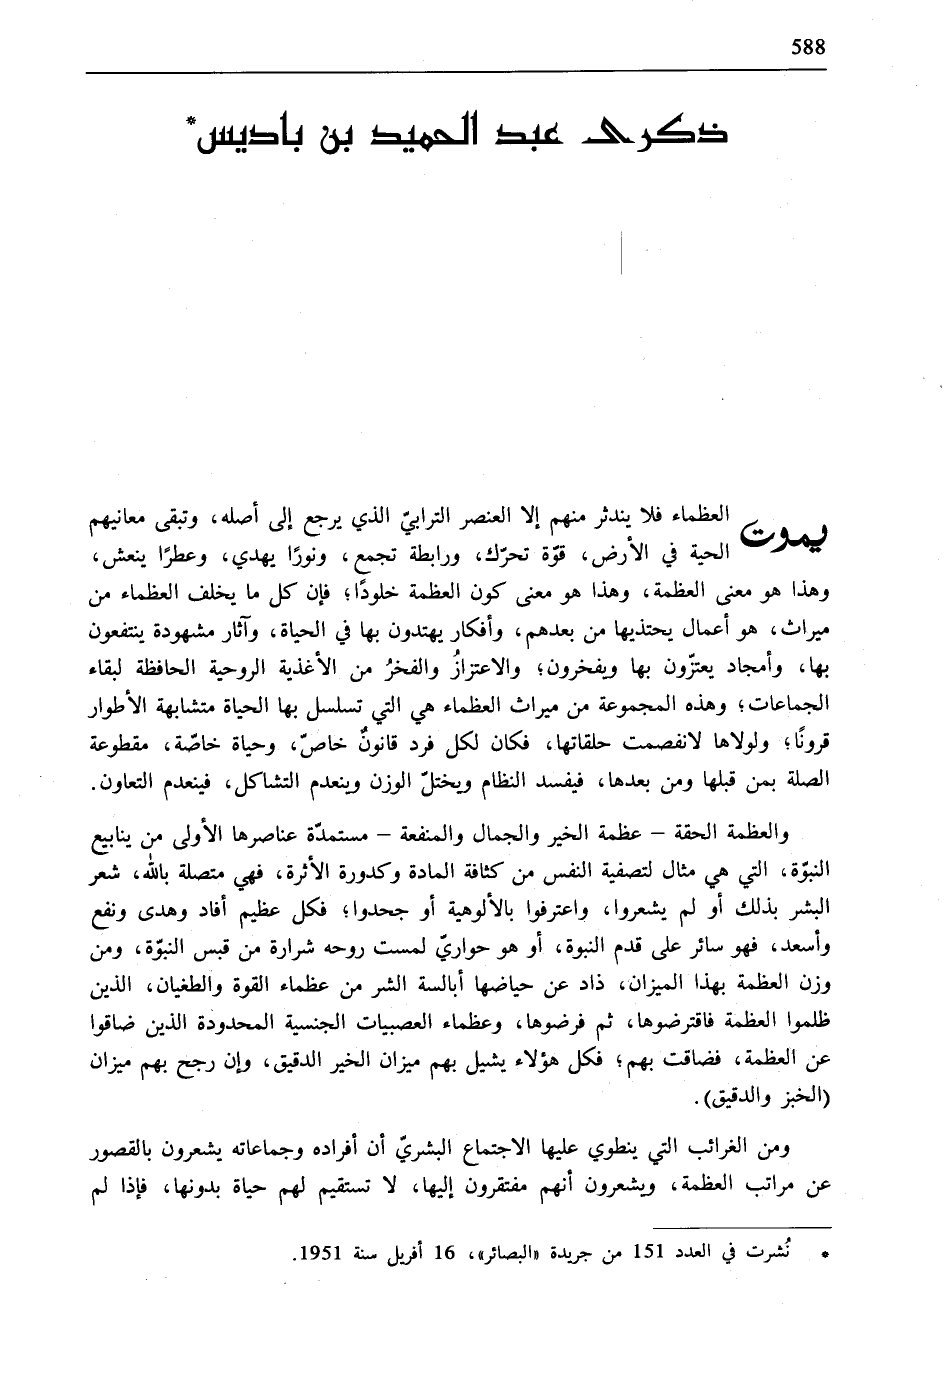 588
ذكرى عبد الحميد بن باديس*
يموت العظماء فلا يندثر منهم إلا العنصر الترابيّ الذي يرجع إلى أصله، وتبقى معانيهم
الحية في الأرض، قوّة تحرّك، ورابطة تجمع، ونورًا يهدي، وعطرًا ينعش،
وهذا هو معنى العظمة، وهذا هو معنى كون العظمة خلودًا؛ فإن كل ما يخلف العظماء من
ميراث، هو أعمال يحتذيها من بعدهم، وأفكار يهتدون بها في الحياة، وآثار مشهودة ينتفعون
بها، وأمجاد يعتزّون بها ويفخرون؛ والاعتزازُ والفخرُ من الأغذية الروحية الحافظة لبقاء
الجماعات؛ وهذه المجموعة من ميراث العظماء هي التي تسلسل بها الحياة متشابهة الأطوار
قرونًا؛ ولولاها لانفصمت حلقاتها، فكان لكل فرد قانونٌ خاصّ، وحياة خاصّة، مقطوعة
الصلة بمن قبلها ومن بعدها، فيفسد النظام ويختلّ الوزن وينعدم التشاكل، فينعدم التعاون.
والعظمة الحقة – عظمة الخير والجمال والمنفعة – مستمدّة عناصرها الأولى من ينابيع
النبوّة، التي هي مثال لتصفية النفس من كثافة المادة وكدورة الأثرة، فهي متصلة بالله، شعر
البشر بذلك أو لم يشعروا، واعترفوا بالألوهية أو جحدوا؛ فكل عظيم أفاد وهدى ونفع
وأسعد، فهو سائر على قدم النبوة، أو هو حواريّ لمست روحه شرارة من قبس النبوّة، ومن
وزن العظمة بهذا الميزان، ذاد عن حياضها أبالسة الشر من عظماء القوة والطغيان، الذين
ظلموا العظمة فاقترضوها، ثم فرضوها، وعظماء العصبيات الجنسية المحدودة الذين ضاقوا
عن العظمة، فضاقت بهم؛ فكل هؤلاء يشيل بهم ميزان الخير الدقيق، وإن رجح بهم ميزان
(الخبز والدقيق).
ومن الغرائب التي ينطوي عليها الاجتماع البشريّ أن أفراده وجماعاته يشعرون بالقصور
عن مراتب العظمة، ويشعرون أنهم مفتقرون إليها، لا تستقيم لهم حياة بدونها، فإذا لم
* نُشرت في العدد 151 من جريدة «البصائر»، 16 أفريل سنة 1951.